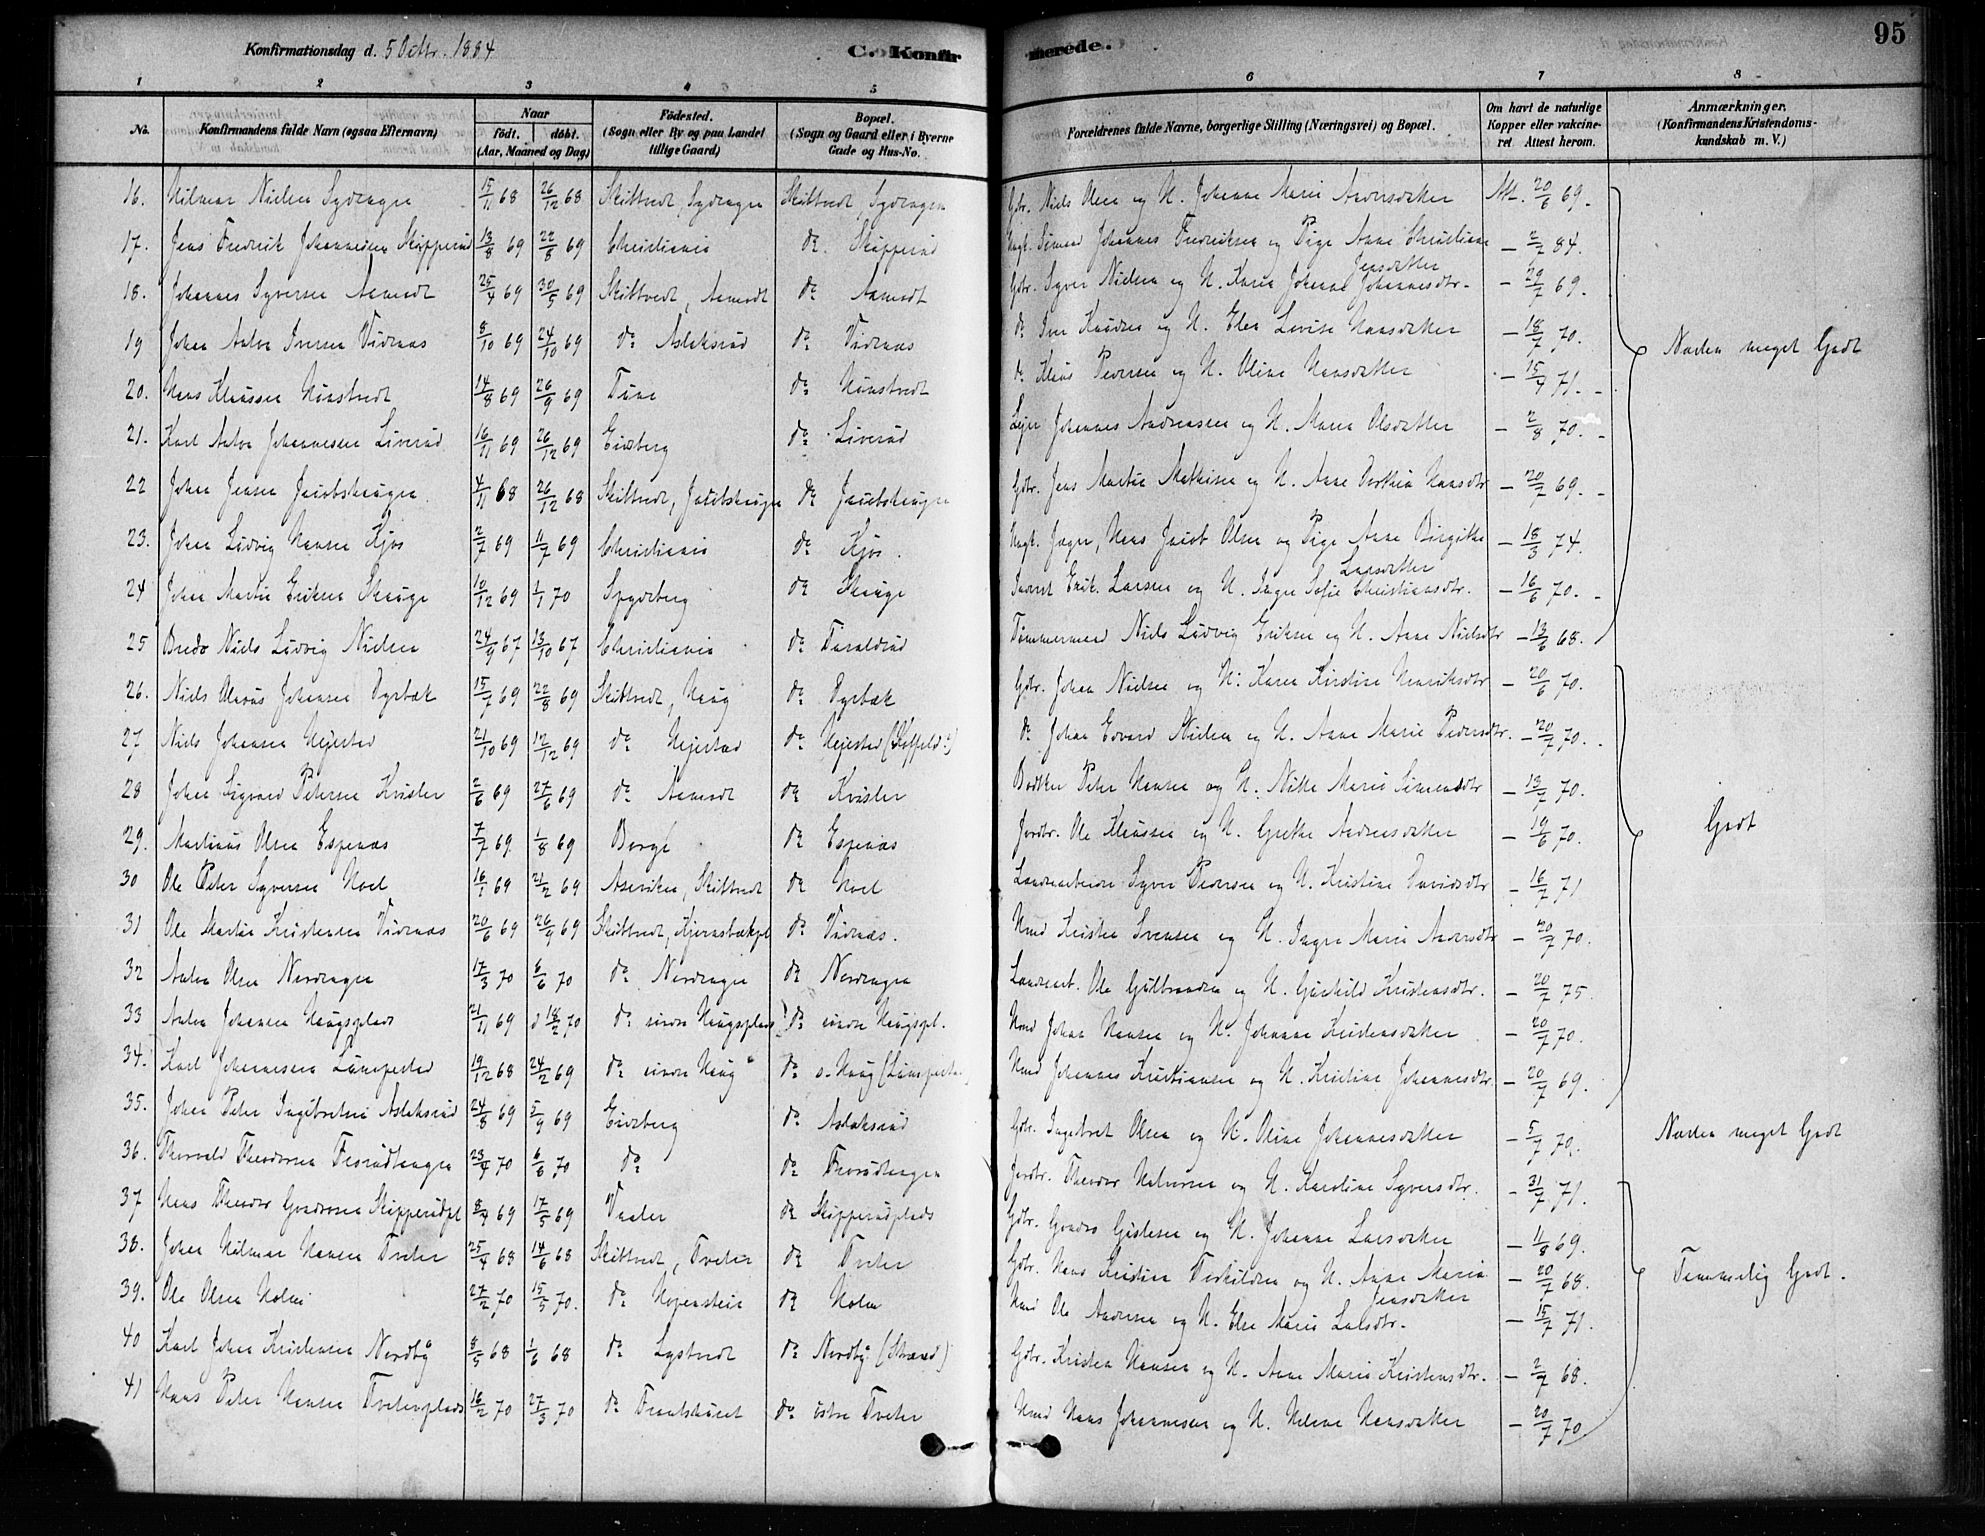 Konfirmationsdag d. 5 Octbr. 1884 C. Konfirmerede. 95
1 2 3 4 5 6 7 8
No. Konfirmandens fulde Navn (ogsaa Efternavn) Naar födt. döbt. (Aar, Maaned og Dag) Födested. (Sogn eller By og paa Landet tillige Gaard) Bopæl. (Sogn og Gaard eller i Byerne Gade og Hus-No. Forældrenes fulde Navne, borgerlige Stilling (Næringsvei) og Bopæl. Om havt de naturlige Kopper eller vaccineret. Attest herom. Anmærkninger. (Konfirmandens Kristendomskundskab m. V.)
16. Hilmar Nielsen Sydengen 15/11 68 26/12 68 Skiptvedt, Sydengen Skiptvedt, Sydengen Gbr. Niels Olsen og H. Johanne Marie Andersdatter Att. 20/6 69.
17. Jens Fredrik Johannesen Skipperud 13/8 69 22/8 69 Christiania do Skipperud Ungk. Sömand Johannes Fredriksen og Pige Anne Christiane Jensdatter — 2/7 84.
18. Johannes Syversen Aamodt 25/4 69 30/5 69 Skiptvedt, Aamodt do Aamodt Gbr. Syver Nielsen og H. Karen Johanne Johannesdtr. — 20/7 69.
19 Johan Anton Iversen Vidnæs 8/10 69 24/10 69 do Aslaksrud do Vidnæs do Iver Knudsen og H. Elen Lovise Hansdatter — 18/7 70. Næsten meget Godt
20. Hans Klausen Hönstvedt 14/8 69 26/9 69 Tune do Hönstvedt do Klaus Pedersen og H. Oline Hansdatter — 15/7 71.
21. Karl Anton Johannesen Liverud 16/11 69 26/12 69 Eidsberg do Liverud Leier Johannes Andreassen og H. Maren Olsdatter — 2/8 70.
22 Johan Jensen Jacobshaugen 4/11 68 26/12 68 Skiptvedt, Jacobshaugen do Jacobshaugen Gbr. Jens Martin Mathisen og H. Anne Dorthea Hansdtr — 20/7 69.
23. Johan Ludvig Hansen Kjos 2/7 69 11/7 69 Christiania do Kjos. Ungk. Jæger, Hans Jacob Olsen og Pige Anne Birgitte Larsdatter — 18/3 74.
24 Johan Martin Eriksen Skauge 10/12 69 1/1 70 Spydeberg do Skauge Inderst Erik Larsen og H. Inger Sofie Christiansdtr. — 16/6 70.
25 Bredo Niels Ludvig Nielsen 24/9 67 13/10 67 Christiania do Taraldrud Tömmermand Niels Ludvig Eriksen og H. Anne Nielsdtr — 13/6 68.
26. Niels Olavus Johansen Dyrbæk 15/7 69 22/8 69 Skiptvedt, Haug do Dyrbæk Gbr. Johan Nielsen og H. Karen Kirstine Henriksdtr — 20/6 70.
27 Niels Johansen Hejestad 21/10 69 12/12 69 do Hejestad do Hejestad do Johan Edvard Nielsen og H. Anne Marie Pedersdtr. — 20/7 70.
28 Johan Sigvard Petersen Kvisler 2/6 69 27/6 69 do Aamodt do Kvisler Bödker Peter Hansen og H. Nille Marie Simensdtr — 13/7 70.
29. Martinus Olsen Espenæs 7/7 69 1/8 69 Borge do Espenæs Jordbr. Ole Klausen og H. Grethe Andersdatter — 19/6 70. Godt
30 Ole Peter Syversen Hoel 16/1 69 21/2 69 Skiptvedt do Hoel Landarbeider Syver Pedersen og H. Kristine Davidsdtr — 16/7 71
31 Ole Martin Kristensen Vidnæs 20/6 69 26/9 69 Skiptvedt, Kjernsbækpl do Vidnæs. Hmd Kristen Svensen og H. Inger Marie Andersdtr — 20/7 70.
32 Anton Olsen Nordengen 17/3 70 6/6 70 do Nordengen do Nordengen Landarb. Ole Gulbrandsen og H. Gunhild Kristensdtr. — 20/7 75.
33 Anton Johansen Haugsplads 21/11 69 d 18/2 70 do söndre Haugsplads do söndre Haugspl. Hmd Johan Hansen og H. Johanne Kristensdatter — 20/7 70.
34. Karl Johannesen Lundpestad 19/12 68 24/2 69 do söndre Haug do s. Haug Hmd Johannes Kristiansen og H. Kristine Johannesdtr. — 20/7 69.
35. Johan Peter Ingebretsen Aslaksrud 24/8 69 5/9 69 Eidsberg do Aslaksrud Gbr. Ingebret Olsen og H. Oline Johannesdatter — 5/7 70. Næsten meget Godt
36. Thorvald Theodorsen Fosrudhaugen 23/4 70 6/6 70 do do Fosrudhaugen Jordbr. Theodor Halvorsen og H. Karoline Syversdtr. — 31/7 71.
37 Hans Theodor Gundersen Skipperudpl 8/4 69 17/5 69 Vaaler do Skipperudplads Gbr. Gunder Gislesen og H. Johanne Larsdatter — 11/8 69.
38. Johan Hilmar Hansen Tveter 25/4 68 14/6 68 Skiptvedt, Tveter do Tveter Gbr. Hans Kristian Terkildsen og H. Anne Maria Jensdatter — 20/7 68. Temmelig Godt.
39. Ole Olsen Holm 27/2 70 15/5 70. do do Holm Hmd Ole Andersen og H. Else Marie Larsdtr. — 15/7 71.
40 Karl Johan Kristensen Nordby 8/5 68 1/6 68 do Lystvedt do Nordby (Strand) Gbr. Kristen Hansen og H. Anne Marie Kristensdtr. — 2/7 68.
41 Hans Peter Hansen Tveterplads 16/2 70 27/3 70 do do östre Tveter Hmd Hans Johannesen og H. Helene Hansdatter — 20/7 70